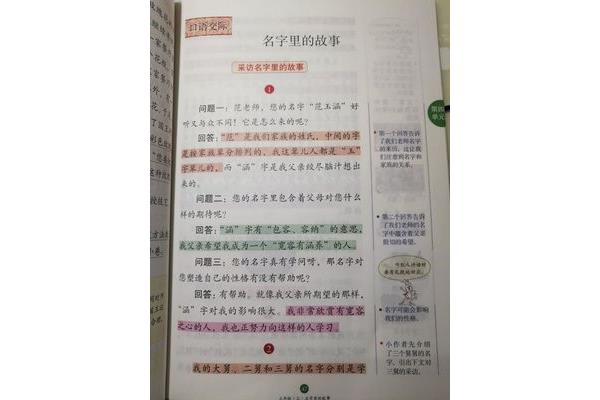 口语交际
名字里的故事
采访名字里的故事
1
问题一：范老师，您的名字“范玉涵”好
听又与众不同！它是怎么来的呢？
回答：“范”是我们家族的姓氏，中间的字
是按家族辈分排列的，我这辈儿人都是“玉”
字辈儿的，而“涵”字是我父亲绞尽脑汁想出
来的。
问题二：您的名字里包含着父母对您什么
样的期待呢？
回答：“涵”字有“包容、容纳”的意思，
我父亲希望我成为一个“宽容有涵养”的人。
问题三：您的名字真有学问呀，那名字对
您塑造自己的性格有没有帮助呢？
回答：有帮助。就像我父亲所期望的那样，
“涵”字对我的影响很大。我非常欣赏有宽容
之心的人，我也正努力向这样的人学习。
2
我的大舅、二舅和三舅的名字分别是学
第四
单元
第一个回答告诉
了我们老师名字
的来历，这让我
们注意到名字和
家族的关系。
第二个回答告诉
了我们老师的名
字中蕴含着父亲
殷切的希望。
听别人讲话时
要有礼貌地回应。
名字可能会影响
我们的性格。
小作者先介绍
了三个舅舅的名
字，引出下文对
三舅的采访。